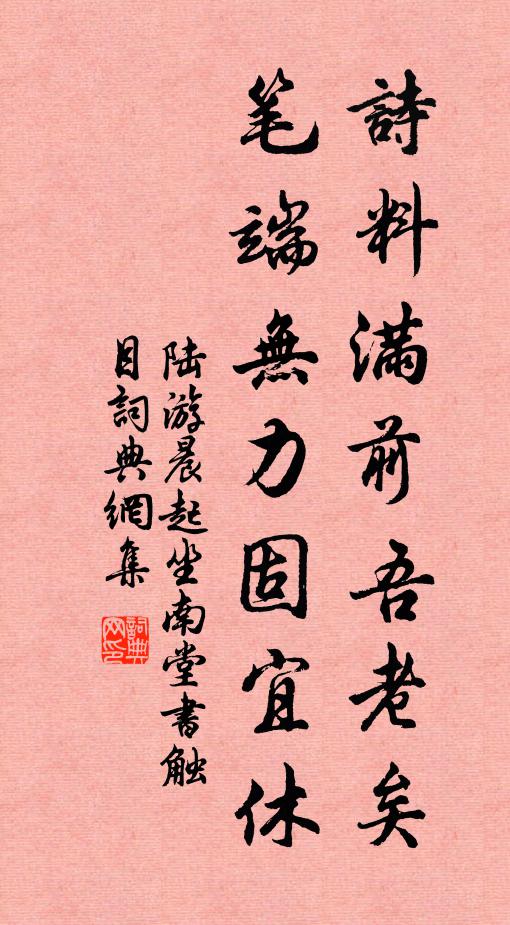 詩料滿前吾老矣
笔端無力固宜休
陆游晨起坐南堂書触
目詞典網集
詞典
网印